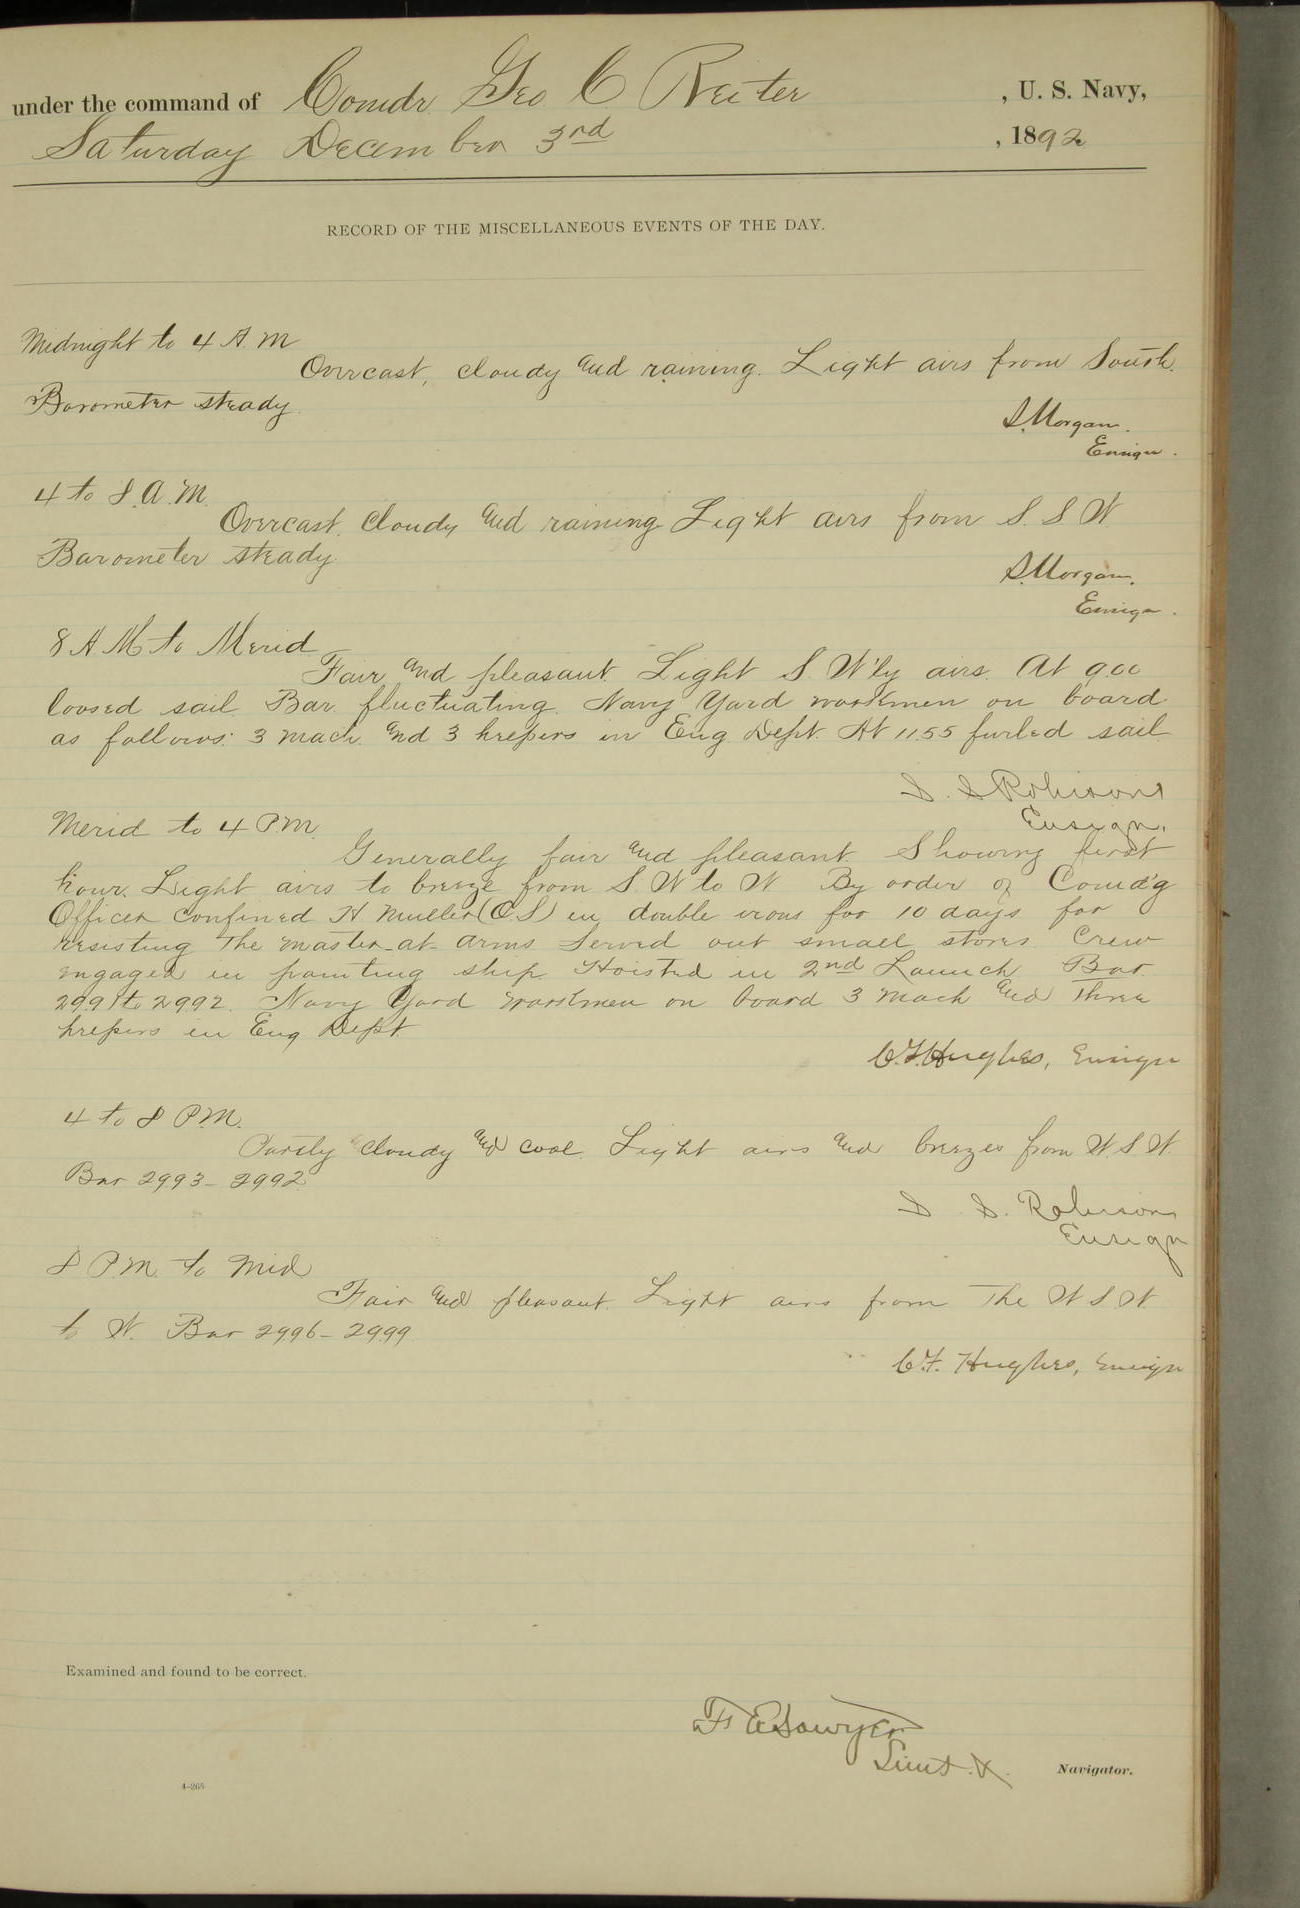 under the command of Comdr Geo. C Reiter , U. S. Navy,
Saturday December 3rd , 1892
RECORD OF THE MISCELLANEOUS EVENTS OF THE DAY.
Midnight to 4 A.M
Overcast, cloudy and raining. Light airs from South.
Barometer steady.
S. Morgan.
Ensign.
4 to 8. A. M.
Overcast. Cloudy and raining Light airs from S. S W.
Barometer steady
S. Morgan.
Ensign.
8 A M to Merid
Fair and pleasant. Light S. W'ly airs. At 9 00
loosed sail Bar. fluctuating. Navy Yard workmen on board
as follows: 3 mach. and 3 helpers in Eng. Dept. At 11.55 furled sail.
S. S Robison
Ensign.
Merid to 4 P.M.
Generally fair and pleasant. Showing first
hour. Light airs to breeze from S. W to W. By order of Comd'g
Officer confined H Muller (O.S) in double irons for 10 days for
resisting the master-at-arms Served out small stores. Crew
engaged in painting ship. Hoisted in 2nd Launch. Bar.
29.91 to 29.92. Navy Yard workmen on board 3 mach and three
helpers in Eng Dept.
C. F. Hughes, Ensign
4 to 8 P.M.
Partly cloudy and cool. Light airs and breezes from W. S. W.
Bar 29.93 - 29.92
S. S. Robison
Ensign
8 P.M. to Mid
Fair and pleasant. Light airs from the W S W.
to W. Bar 29.96 - 29.99
C. F. Hughes, Ensign
Examined and found to be correct.
F E Sawyer
Lieut. &
Navigator.
4-265